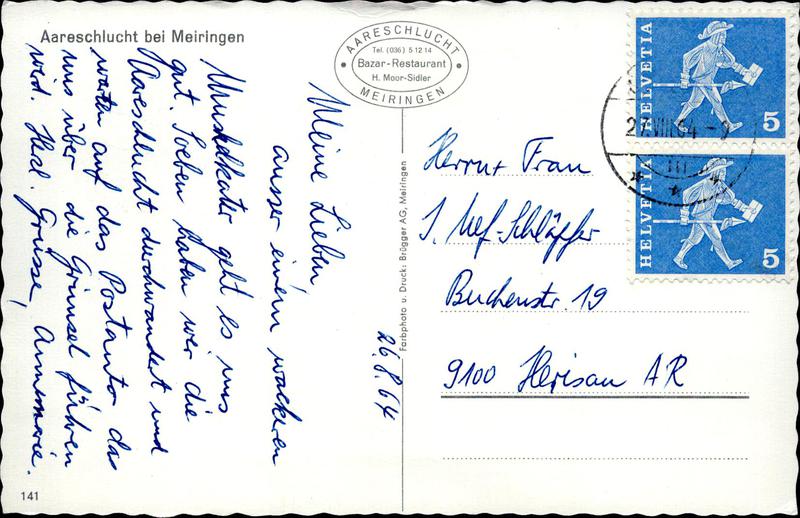 Aareschlucht bei Meiringen
AARESCHLUCHT
Tel. (036) 5 12 14
Bazar-Restaurant
H. Moor-Sidler
MEIRINGEN
26.8.64
Meine Lieben,
ausser einem wackeren
Muskelkater geht es uns
gut. Soeben haben wir die
Aareschlucht durchwandert und
warten auf das Postauto das
uns über die Grimsel führen
wird. Herzl. Grüsse, Annemarie.
Farbphoto u. Druck: Brügger AG, Meiringen
HELVETIA
5
27.VIII.64-9
HELVETIA
5
Herr u. Frau
J. Nef-Schläpfer
Buchenstr. 19
9100 Herisau AR
141